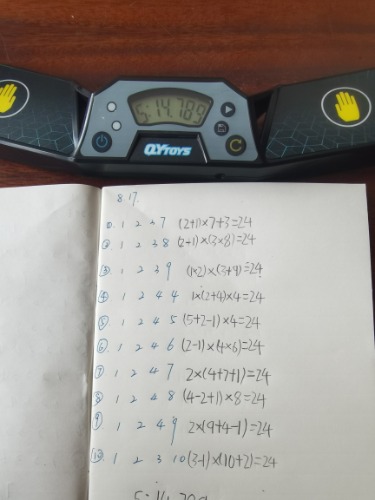 5:14.789
QYTOYS
8.17.
① 1 2 3 7 (2+1)×7+3=24
② 1 2 3 8 (2+1)×(3×8)=24
③ 1 2 3 9 (1×2)×(3+9)=24
④ 1 2 4 4 1×(2+4)×4=24
⑤ 1 2 4 5 (5+2-1)×4=24
⑥ 1 2 4 6 (2-1)×(4×6)=24
⑦ 1 2 4 7 2×(4+7+1)=24
⑧ 1 2 4 8 (4-2+1)×8=24
⑨ 1 2 4 9 2×(9+4-1)=24
⑩ 1 2 3 10 (3-1)×(10+2)=24